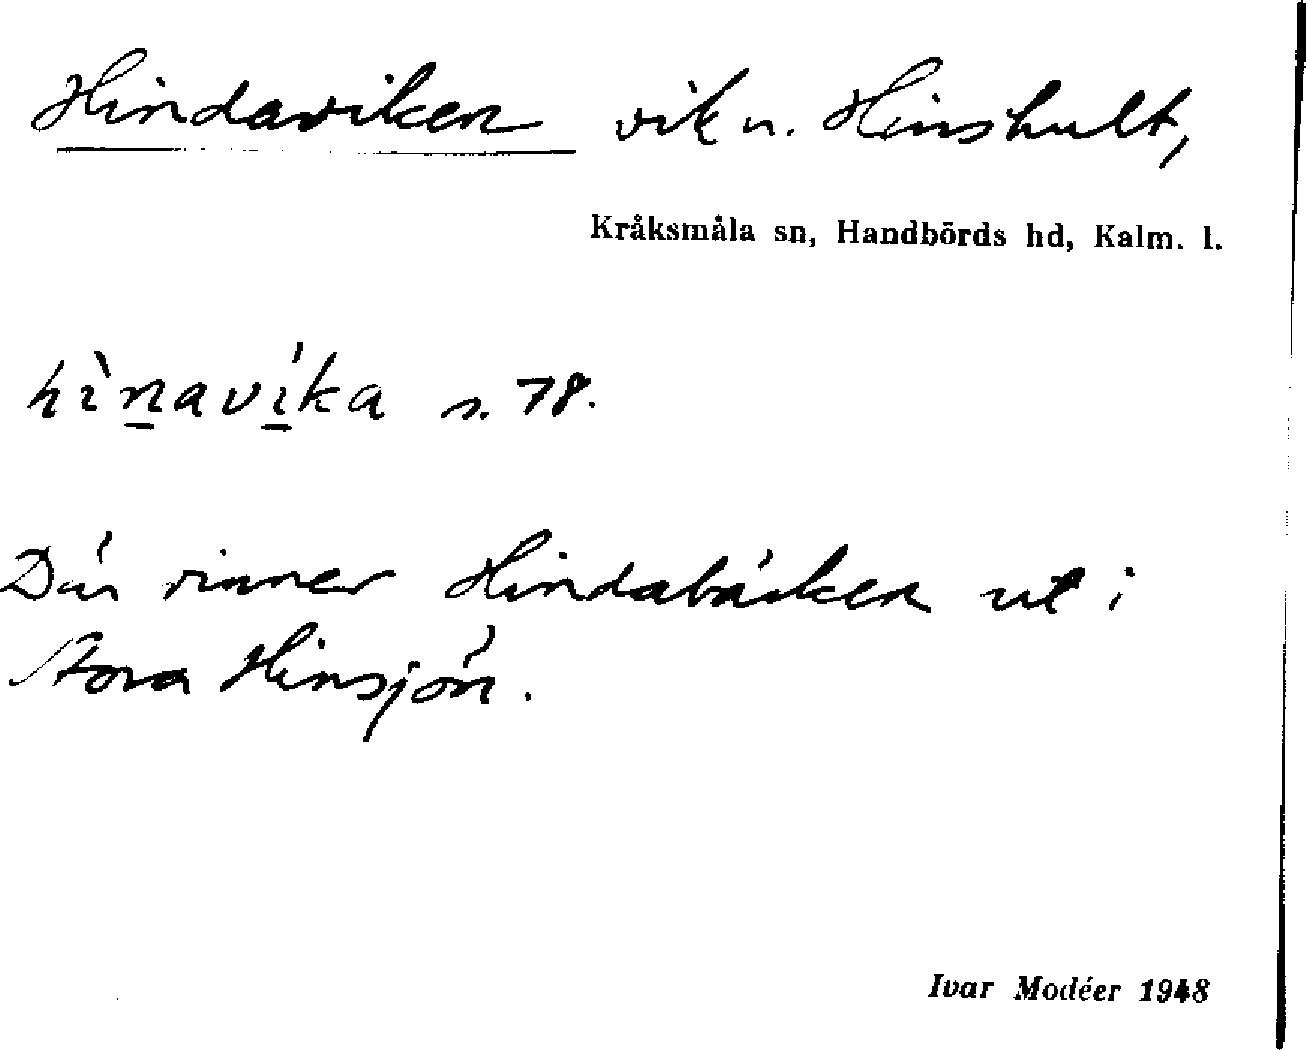 Hindaviken vik n. Hinshult,
Kråksmåla sn, Handbörds hd, Kalm. l.
hìn̲aví̲ka s. 78.
Där rinner Hindabäcken ut i
Stora Hinsjön.
Ivar Modéer 1948